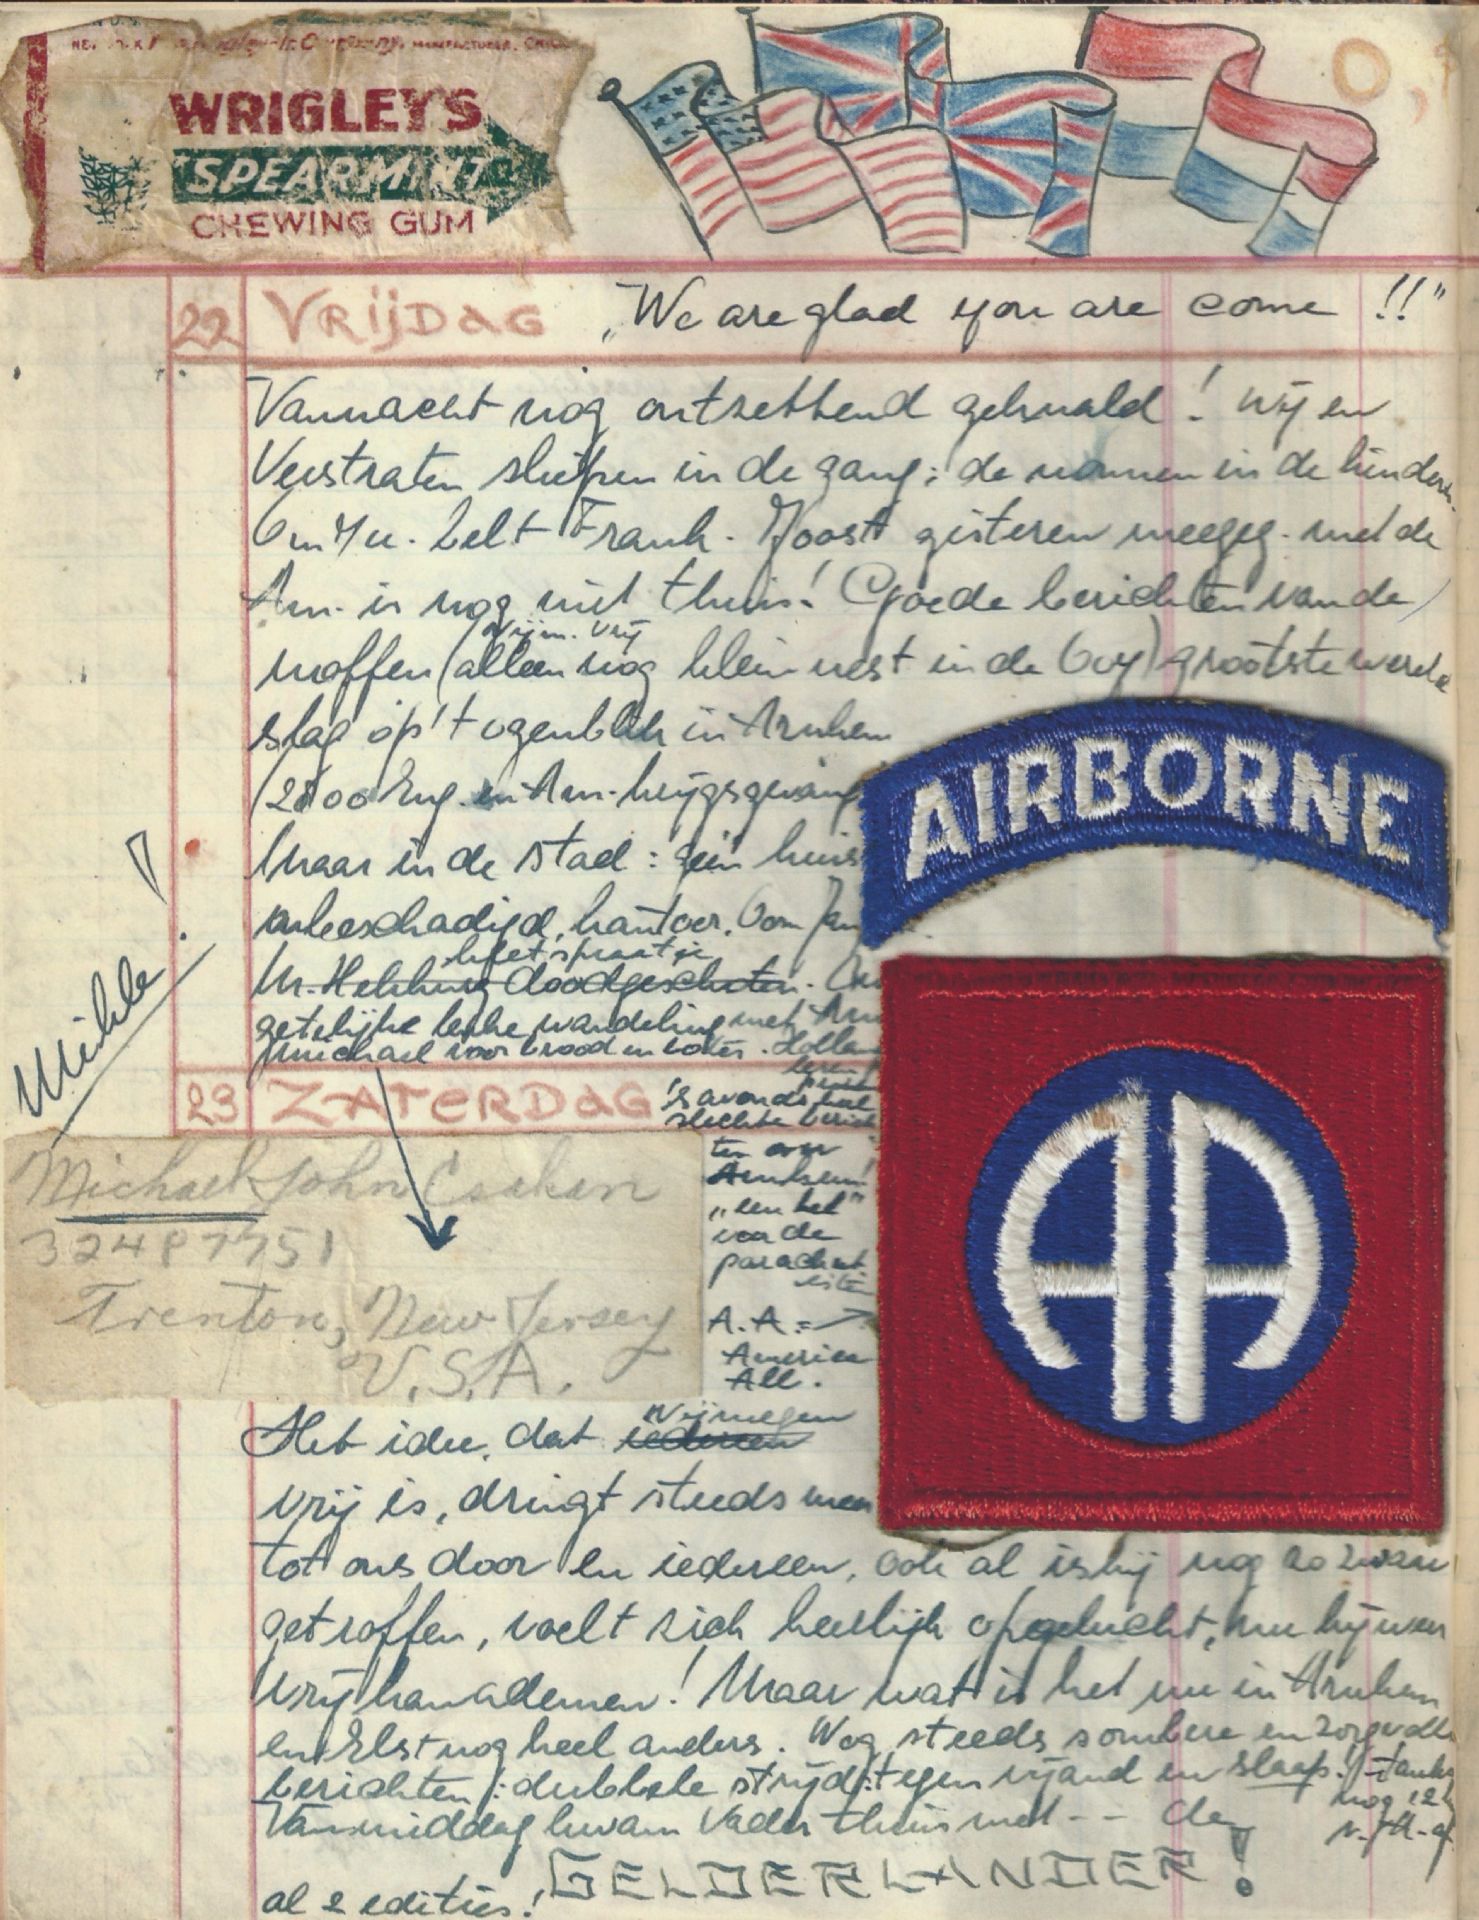 WRIGLEY'S
SPEARMINT
CHEWING GUM
22 VRIJDAG „We are glad you are come !!"
Vannacht nog ontzettend geknald! Wij en
Verstraten sliepen in de gang; de nonnen in de kinderk.
Om 7 u. belt Frank. Joost gisteren meegeg. met de
Am. is nog niet thuis! Goede berichten van de
Nijm. vrij
moffen (alleen nog klein nest in de Ooy) grootste wereld
slag op 't ogenblik in Arnhem
(2800 Eng. en Am. krijgsgevang
Maar in de stad: géén huis
onbeschadigd, kantoor, Oom Jan
heet spraatje
Mr. Hekking doodgeschoten.
getelijke leuke wandeling met Am
Michael voor brood en boter. Holland
AIRBORNE
AA
Mikke!
23 ZATERDAG 's avonds heel
slechte berich
ten over
Arnhem!
„een hel"
voor de
parachut
isten
A.A. =
America
All.
Michael John
Trenton, New Jersey
U.S.A.
Nijmegen
Het idee, dat iedereen
vrij is, dringt steeds meer
tot ons door en iedereen, ook al is hij nog zo zwaar
getroffen, voelt zich heerlijk opgelucht, nu hij weer
vrij kan ademen! Maar wat is het nu in Arnhem
en Elst nog heel anders. Nog steeds sombere en zorgvolle
berichten: dubbele strijd: tegen vijand en slaap! tanks
nog 12 k
v. A. af
Vanmiddag kwam Vader thuis met -- de
al 2 edities! GELDERLANDER!